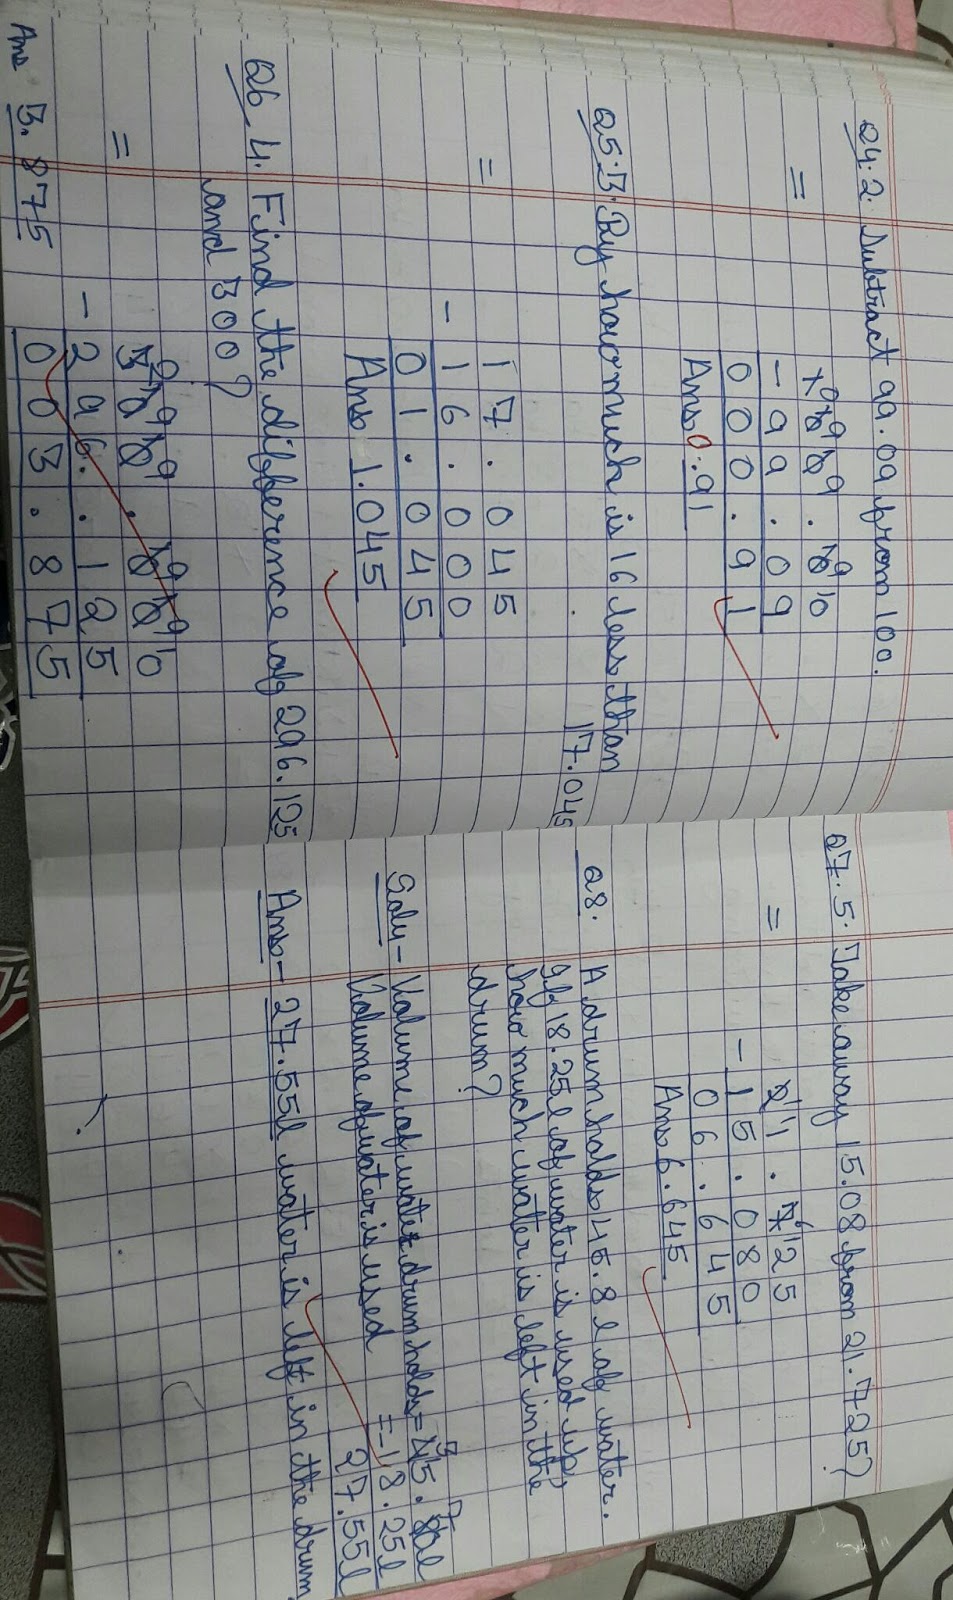 Q4.2. Subtract 99.09 from 100.
= 100.00
- 99.09
000.91
Ans 0.91
Q5.3. By how much is 16 less than
17.045
= 17.045
- 16.000
01.045
Ans 1.045
Q6.4. Find the difference of 296.125
and 300?
= 300.000
- 296.125
003.875
Ans 3.875
Q7.5. Take away 15.08 from 21.725?
= 21.725
- 15.080
06.645
Ans 6.645
Q8. A drum holds 45.8 l of water.
If 18.25l of water is used up,
how much water is left in the
drum?
Soly- Volume of water drum holds = 45.80l
Volume of water is used = - 18.25l
27.55l
Ans - 27.55l water is left in the drum